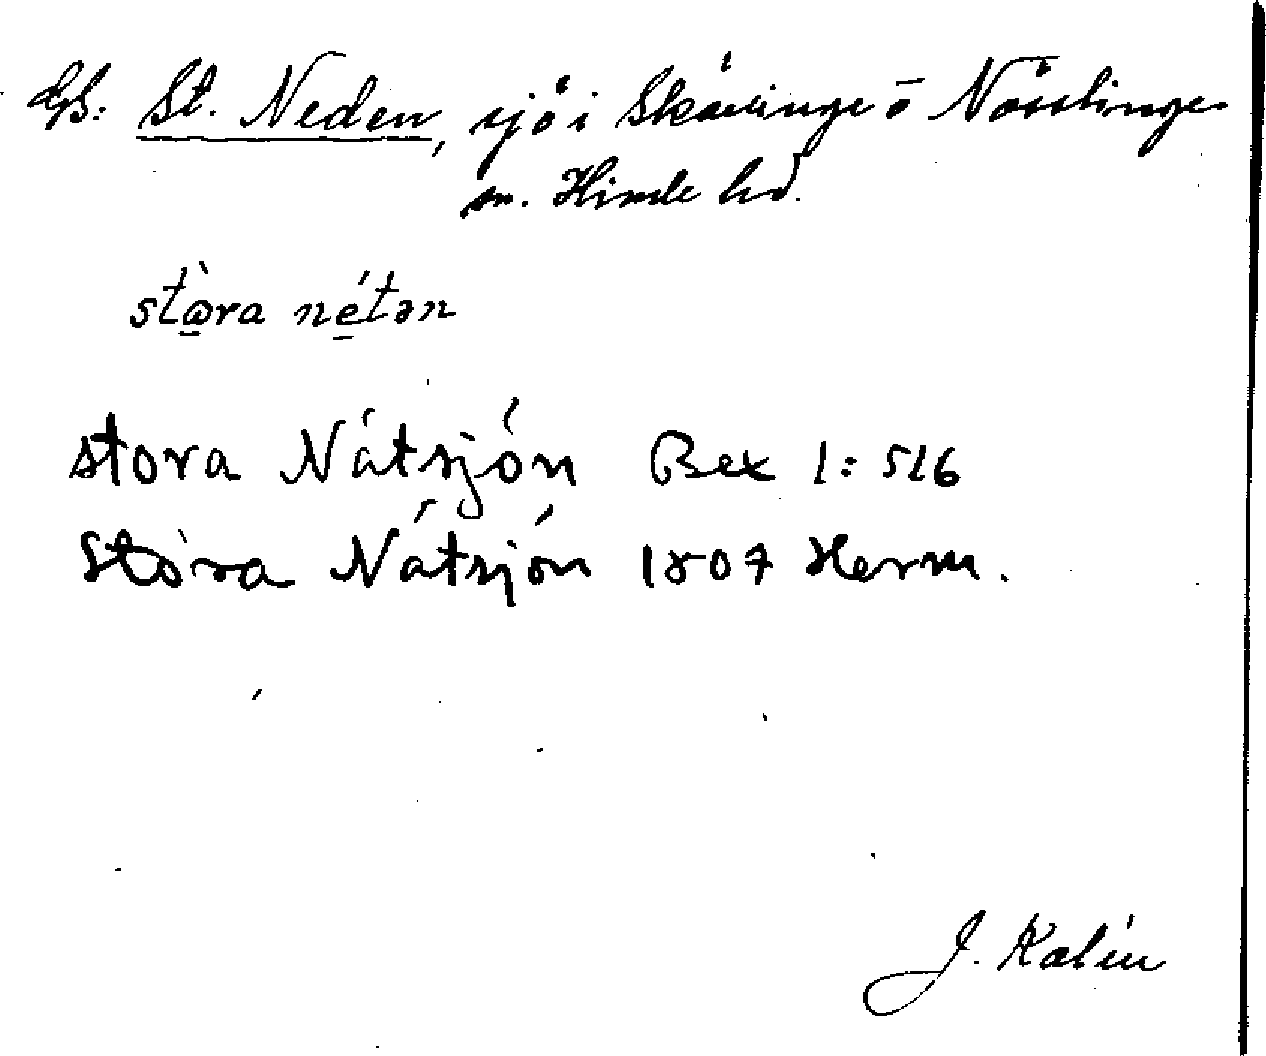 GS: St. Neden, sjö i Skällinge o Nösslinge
sn. Himle hd.
stòra nétən
Stora Nätsjön Bex 1: 516
Stora Nätsjön 1807 Herm.
J. Kalén